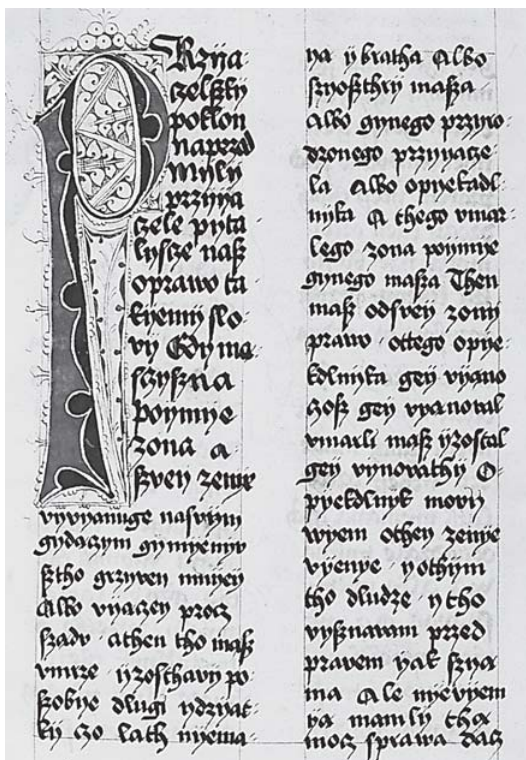 Przÿa
czelskÿ
poklon
naprzod
Mÿlÿ
przÿya
czele pÿta
lÿscze nasz
oprawo ta
kÿemÿ slo
vÿ Gdÿ ma
szÿszna
poÿmÿe
zona a
szvey zenye
vÿvyanuge naswÿm
gÿdaczym gÿmyenyv
sztho grzyven mnyey
Albo vÿaczey procz
szadv athen tho masz
vmrze ÿzosthavÿ po
szobye dlugi ÿdzyat
kÿ czo lath nÿema
ya ÿ bratha Albo
szyosthrÿ masza
Albo gynego przyro
dzonego przyyacze
la Albo opyekadl
nÿka A thego vmar
lego zona poymye
gynego masza Then
masz odsvey zonÿ
prawo ottego opye
kdlnÿka geÿ vÿano
czosz gey vyanoval
vmarli masz ÿzostal
gey vÿnovathÿ O
pÿekdlnÿk movÿ
wyem othey zenÿe
vÿenye ÿothÿm
tho dludze ÿ tho
vÿsznavam przed
pravem ÿak szna
ma Ale nyevyem
ÿa mamlÿ tha
mocz sprawa dacz